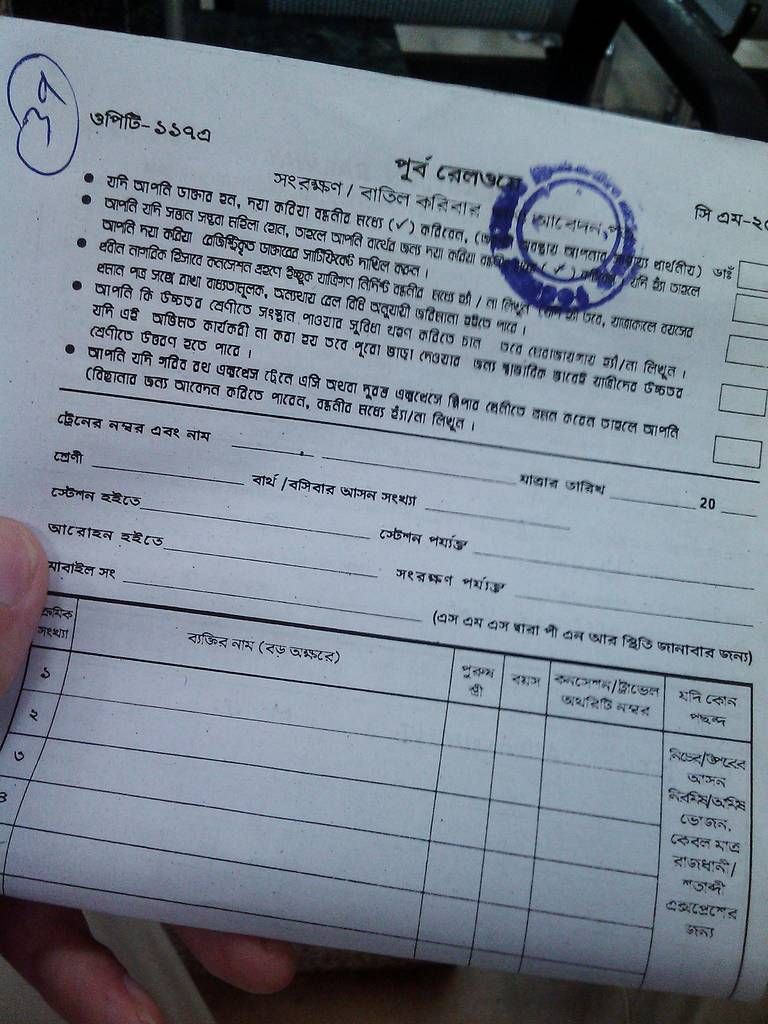 ৩৭
ওপিটি-১১৭এ
পূর্ব রেলওয়ে
সংরক্ষণ / বাতিল করিবার আবেদন পত্র
সি এম-২০
• যদি আপনি ডাক্তার হন, দয়া করিয়া বন্ধনীর মধ্যে (✓) করিবেন, আপনার প্রার্থনীয়)
• আপনি যদি সন্তান সম্ভবা মহিলা হোন, তাহলে আপনি বার্থের জন্য দয়া করিয়া (✓) যদি হ্যাঁ তাহলে
আপনি দয়া করিয়া রেজিস্ট্রিকৃত ডাক্তারের সার্টিফিকেট দাখিল করুন ।
• প্রবীন নাগরিক হিসাবে কনসেশন গ্রহণে ইচ্ছুক যাত্রিগণ নির্দিষ্ট বন্ধনীর মধ্যে হ্যাঁ / না লিখুন তবে, যাত্রাকালে বয়সের
প্রমান পত্র সঙ্গে রাখা বাধ্যতামূলক, অন্যথায় রেল বিধি অনুযায়ী জরিমানা হইতে পারে ।
• আপনি কি উচ্চতর শ্রেণীতে সংস্থান পাওয়ার সুবিধা গ্রহণ করিতে চান তবে হ্যাঁ/না লিখুন ।
যদি এই অভিমত কার্যকরী না করা হয় তবে পুরো ভাড়া দেওয়ার জন্য স্বাভাবিক ভাবেই যাত্রীদের উচ্চতর
শ্রেণীতে উত্তরণ হতে পারে ।
• আপনি যদি গরিব রথ এক্সপ্রেস ট্রেনে এসি অথবা দুরন্ত এক্সপ্রেসে স্লিপার শ্রেণীতে ভ্রমন করেন তাহলে আপনি
(বিছানার জন্য আবেদন করিতে পারেন, বন্ধনীর মধ্যে হ্যাঁ/না লিখুন ।
ট্রেনের নম্বর এবং নাম যাত্রার তারিখ 20
শ্রেণী বার্থ /বসিবার আসন সংখ্যা
স্টেশন হইতে স্টেশন পর্য্যন্ত
আরোহন হইতে সংরক্ষণ পর্য্যন্ত
মোবাইল সং (এস এম এস দ্বারা পী এন আর স্থিতি জানাবার জন্য)
ক্রমিক সংখ্যা
ব্যক্তির নাম (বড় অক্ষরে)
পুরুষ স্ত্রী
বয়স
কনসেশন/ট্রাভেল অথরিটি নম্বর
যদি কোন পছন্দ
১
২
৩
৪
নিচের/উপরের
আসন
নিরমিষ/অমিষ
ভোজন,
কেবল মাত্র
রাজধানী/
শতাব্দী
এক্সপ্রেসের
জন্য